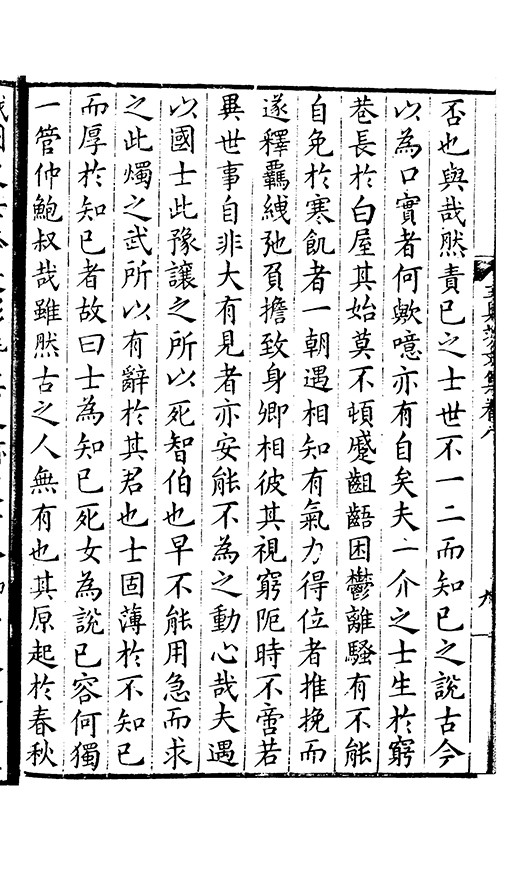 否也與哉然責已之士世不一二而知已之說古今
以為口實者何歟噫亦有自矣夫一介之士生於窮
巷長於白屋其始莫不頓蹙齟齬困鬱離騷有不能
自免於寒飢者一朝遇相知有氣力得位者推挽而
遂釋羈紲弛負擔致身卿相彼其視窮阨時不啻若
異世事自非大有見者亦安能不為之動心哉夫遇
以國士此豫讓之所以死智伯也早不能用急而求
之此燭之武所以有辭於其君也士固薄於不知已
而厚於知已者故曰士為知已死女為說已容何獨
一管仲鮑叔哉雖然古之人無有也其原起於春秋